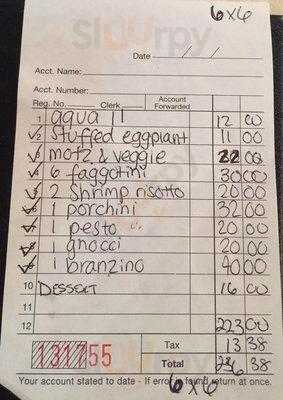 6x6
Slurrpy
Date / /
Acct. Name:
Acct. Number:
Reg. No. Clerk Account Forwarded
1 aqua 12 00
2 Stuffed eggplant 11 00
3 motz & veggie 22 00
4 6 faggotini 30 00
5 2 Shrimp risotto 20 00
6 1 porchini 32 00
7 1 pesto 20 00
8 1 gnocci 20 00
9 1 branzino 40 00
10 DESSERT 16 00
11
12 223 00
131755 Tax 13 38
Total 236 38
Your account stated to date - If error is found return at once.
6x6